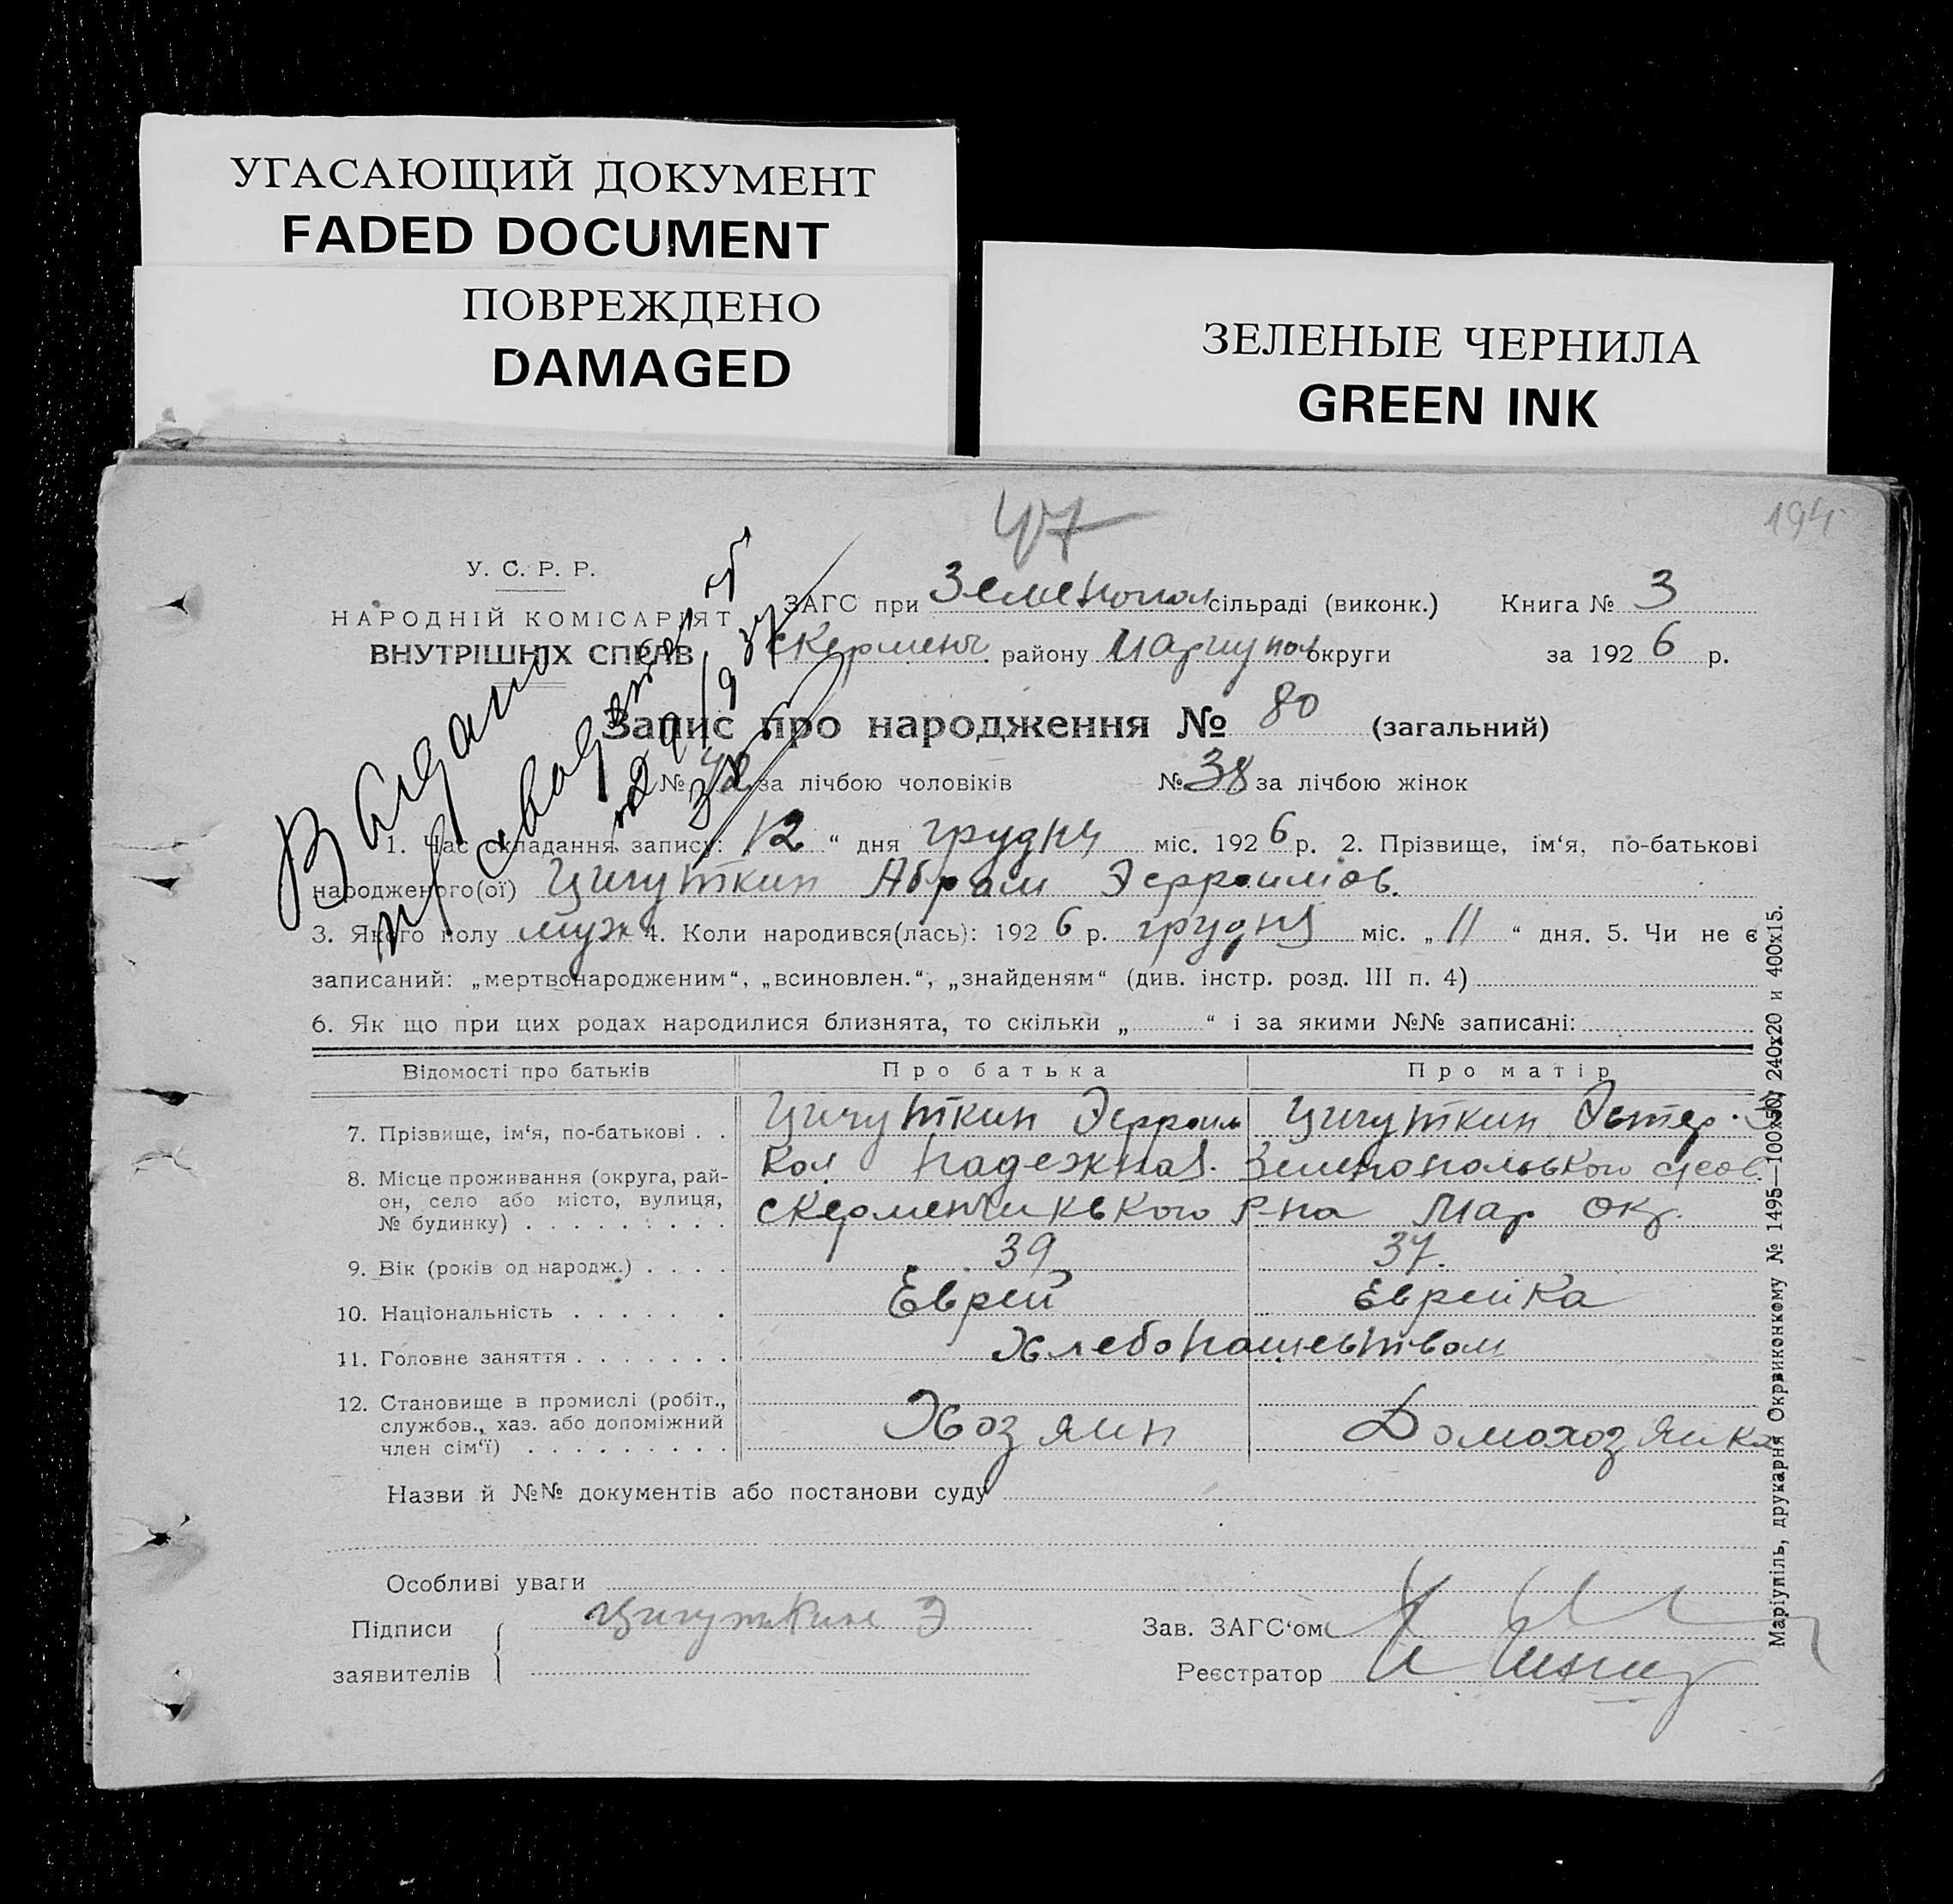 УГАСАЮЩИЙ ДОКУМЕНТ
FADED DOCUMENT
ПОВРЕЖДЕНО
DAMAGED
ЗЕЛЕНЫЕ ЧЕРНИЛА
GREEN INK
47
194
У. С. Р. Р.
НАРОДНІЙ КОМІСАРІЯТ
ВНУТРІШНІХ СПРАВ
ЗАГС при Зеленопол сільраді (виконк.) Книга № 3
скерменч. району Мариупол округи за 1926 р.
Запис про народження № 80 (загальний)
№ 42 за лічбою чоловіків № 38 за лічбою жінок
1. Час складання запису: 12 “ дня грудня міс. 1926 р. 2. Прізвище, ім‘я, по-батькові
народженого(ої) Цигуткин Абрам Эфроимов.
3. Якого полу муж 4. Коли народився(лась): 1926 р. грудня міс. „ 11 “ дня. 5. Чи не є
записаний: „мертвонародженим“, „всиновлен.“, „знайденям“ (див. інстр. розд. III п. 4)
6. Як що при цих родах народилися близнята, то скільки „ “ і за якими №№ записані:
Відомості про батьків Про батька Про матір
7. Прізвище, ім‘я, по-батькові . . Цигуткин Эфроим Цигуткин Эстер
8. Місце проживання (округа, рай- Кол Надежная. Зеленопольского
он, село або місто, вулиця, скерменчикського Р-на Мар Окр.
№ будинку) . . . . . . . . .
9. Вік (років од народж.) . . . . 39 37.
10. Національність . . . . . . . Еврей Еврейка
11. Головне заняття . . . . . . . Хлебопашеством
12. Становище в промислі (робіт.,
службов., хаз. або допоміжний Хозяин Домохозяйка
член сім‘ї) . . . . . . . . .
Назви й №№ документів або постанови суду
Особливі уваги
Підписи Цигуткин Э Зав. ЗАГС‘ом
заявителів Реєстратор
Маріупіль, друкарня Окрвиконкому № 1495—100х50, 240х20 и 400х15.